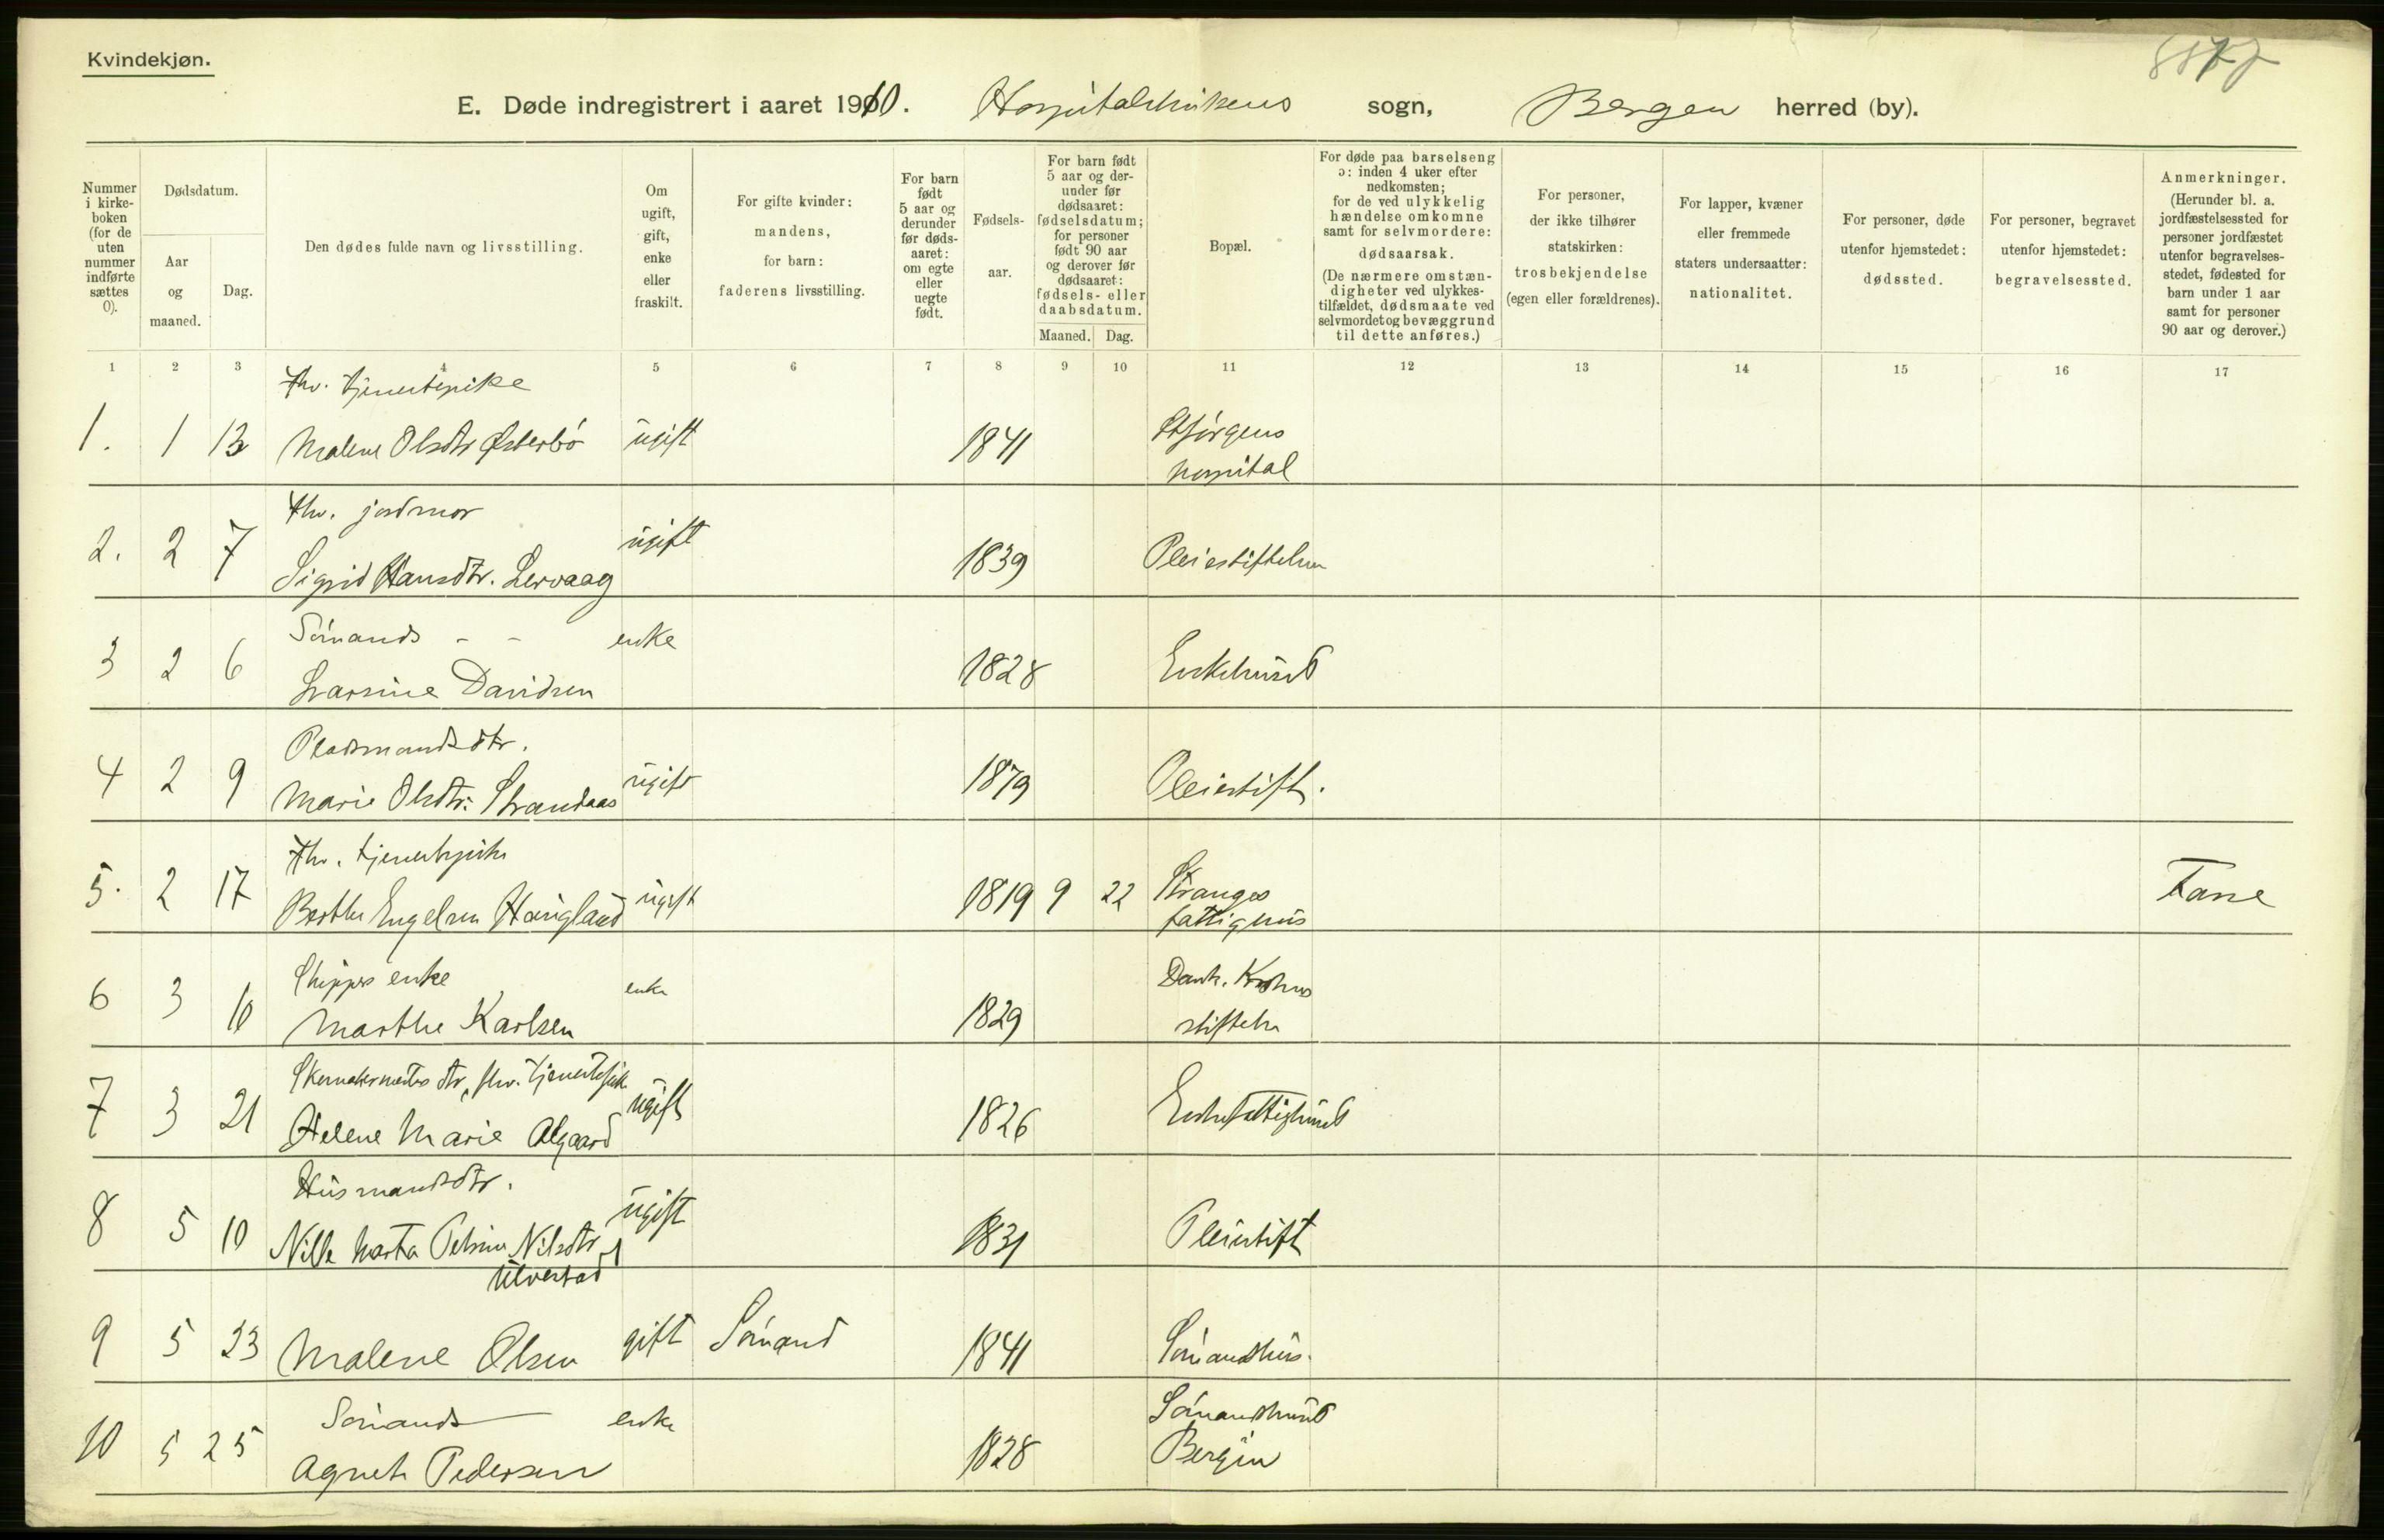 Kvindekjøn.
E. Døde indregistrert i aaret 1910. Hospitalskirkens sogn, Bergen herred (by).
Nummer i kirke-boken (for de uten nummer indførte sættes 0).
Dødsdatum.
Aar og maaned.
Dag.
Den dødes fulde navn og livsstilling.
Om ugift, gift, enke eller fraskilt.
For gifte kvinder: mandens, for barn: faderens livsstilling.
For barn født 5 aar og derunder før døds-aaret: om egte eller uegte født.
Fødsels-aar.
For barn født 5 aar og der-under før dødsaaret: fødselsdatum; for personer født 90 aar og derover før dødsaaret: fødsels- eller daabsdatum.
Maaned. Dag.
Bopæl.
For døde paa barselseng ɔ: inden 4 uker efter nedkomsten; for de ved ulykkelig hændelse omkomne samt for selvmordere: dødsaarsak. (De nærmere omstæn-digheter ved ulykkes-tilfældet, dødsmaate ved selvmordet og bevæggrund til dette anføres.)
For personer, der ikke tilhører statskirken: trosbekjendelse (egen eller forældrenes).
For lapper, kvæner eller fremmede staters undersaatter: nationalitet.
For personer, døde utenfor hjemstedet: dødssted.
For personer, begravet utenfor hjemstedet: begravelsessted.
Anmerkninger. (Herunder bl. a. jordfæstelsessted for personer jordfæstet utenfor begravelses-stedet, fødested for barn under 1 aar samt for personer 90 aar og derover.)
1 2 3 4 5 6 7 8 9 10 11 12 13 14 15 16 17
fhv. tjenestepike
1. 1 13 Malene Olsdtr Østerbö ugift 1841 St Jørgens
hospital
fhv. jordmor
2. 2 7 Sigrid Hansdtr. Lervaag ugift 1839 Pleiestiftelsen
Sömands - - enke
3 2 6 Larsine Davidsen 1828 Enkehuset
Pladsmandsdtr.
4 2 9 Marie Olsdtr. Strandaas ugift 1879 Pleiestift.
fhv. tjenestepike
5. 2 17 Berthe Engelsen Haugland ugift 1819 9 22 Stranges Fane
fattighus
Skippers enke
6 3 10 Marthe Karlsen enke 1829 Dank. Krohns
stiftelse
Skomakermesters dtr, fhv. tjenestepike
7 3 21 Helene Marie Algaard ugift 1826 Enkefattighuset
Husmandsdtr.
8 5 10 Nille Marta Petrine Nilsdtr ugift 1831 Pleiestift
Ulvestad
9 5 23 Malene Olsen gift Sömand 1841 Sömandshus.
Sömands enke Sömandshuset
10 5 25 Agnete Pedersen 1828 Bergen